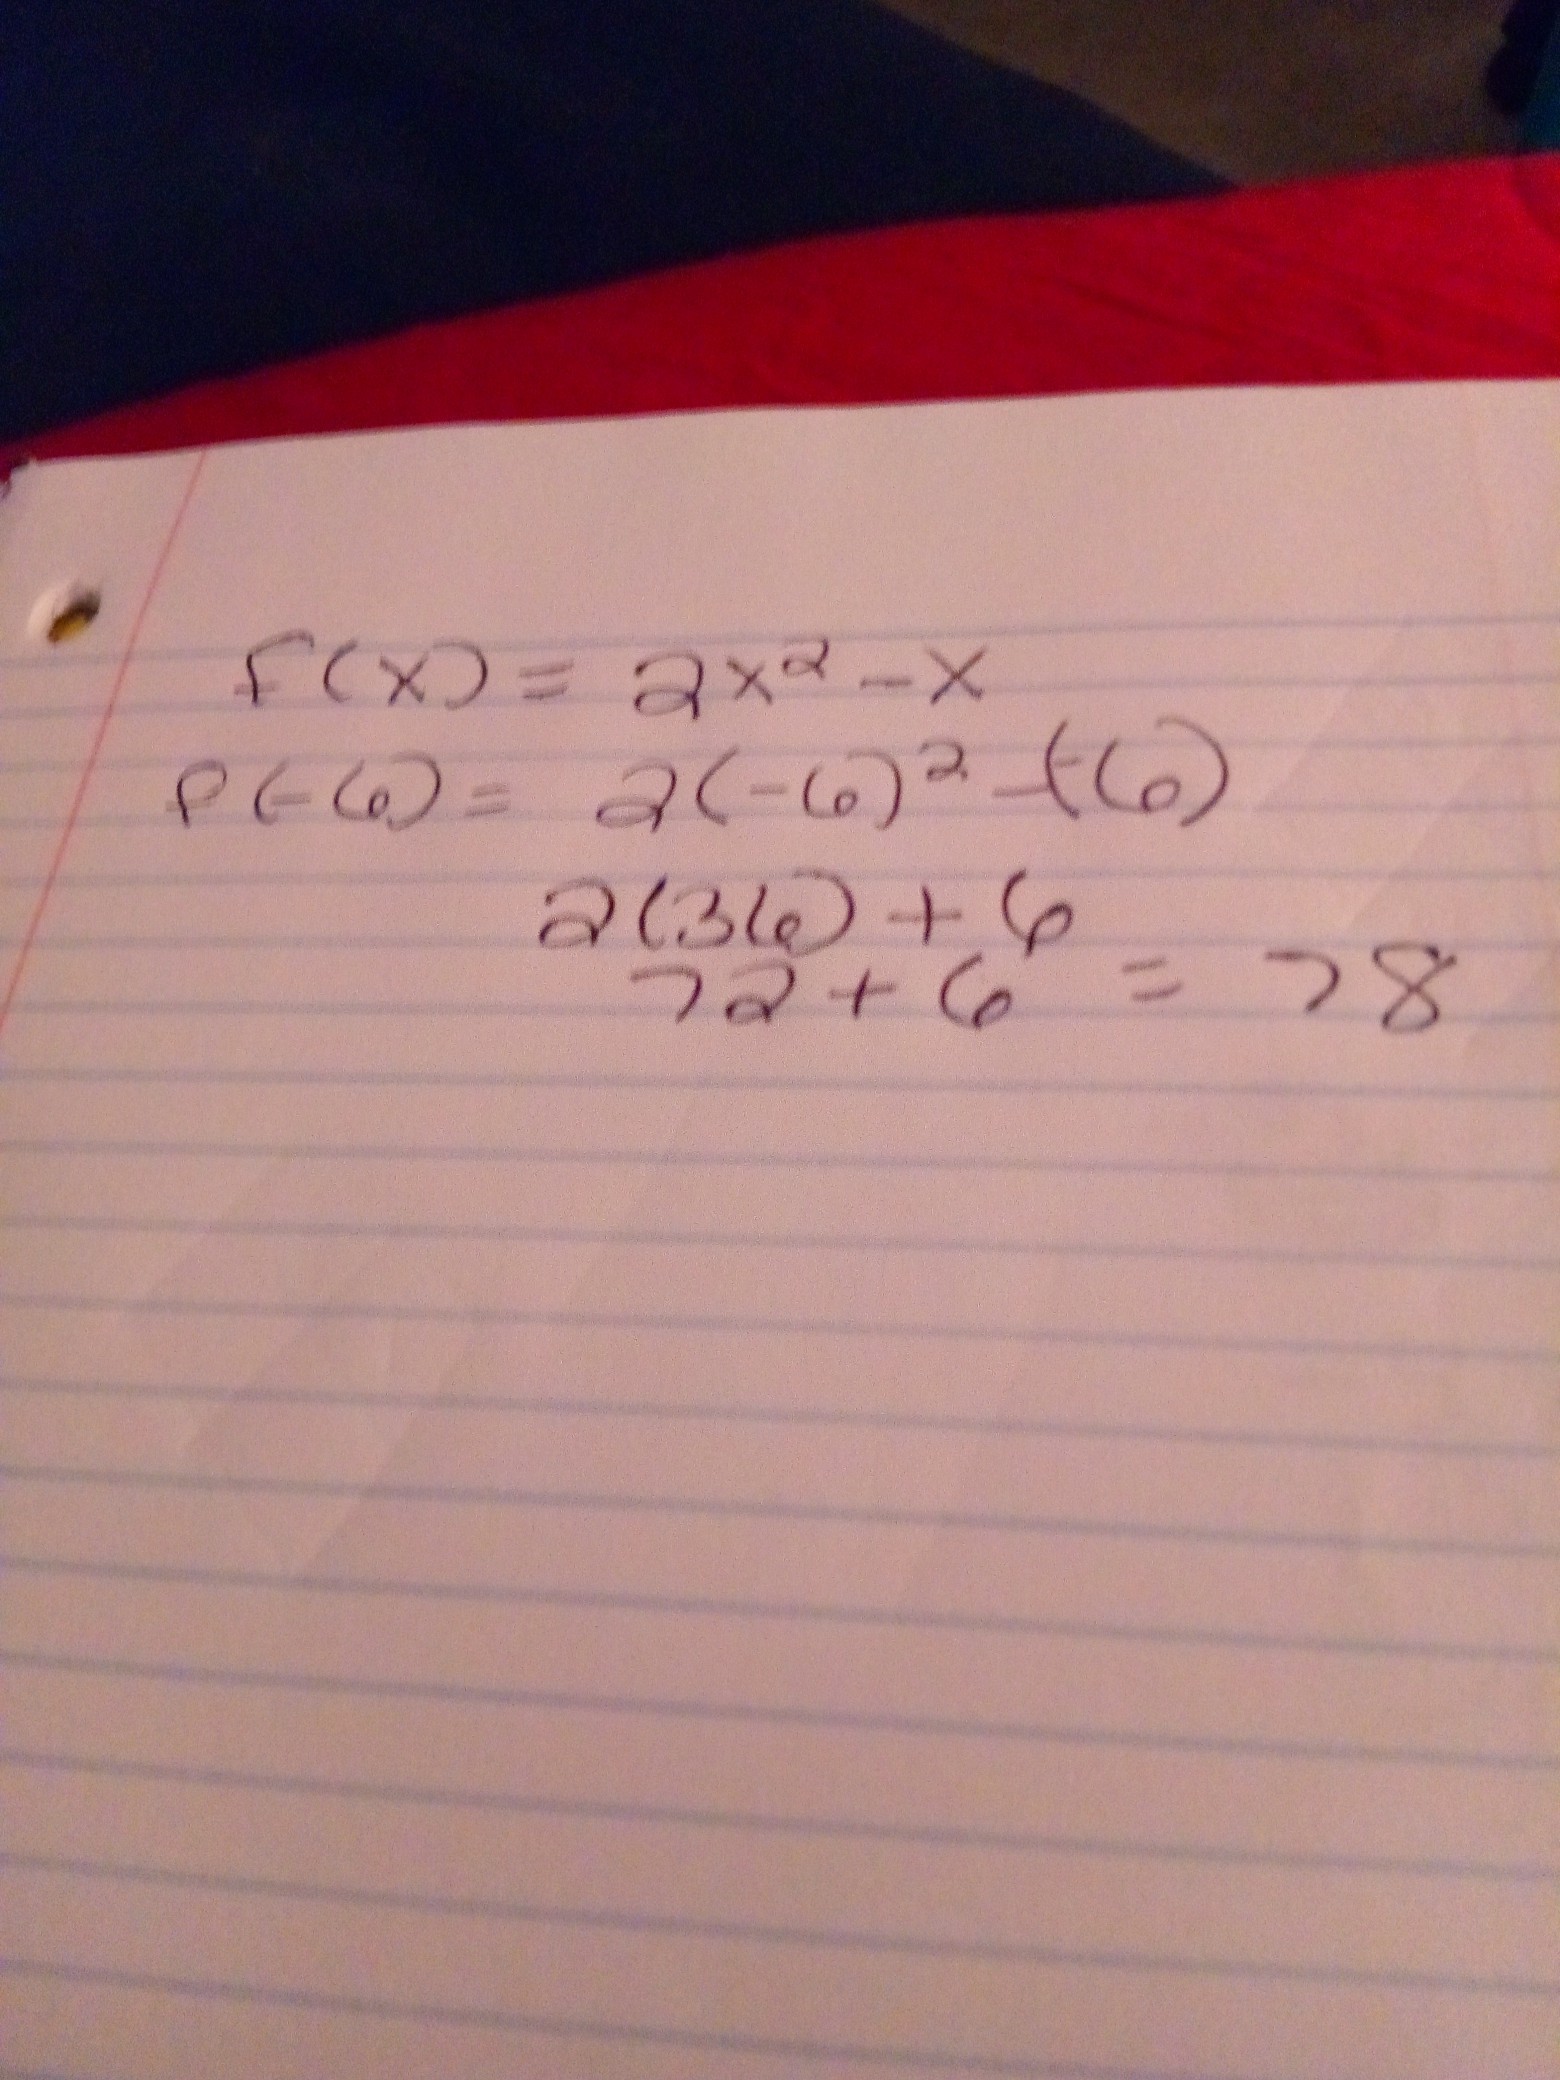 f(x) = 2x² - x
f(-6) = 2(-6)² - (-6)
2(36) + 6
72 + 6 = 78